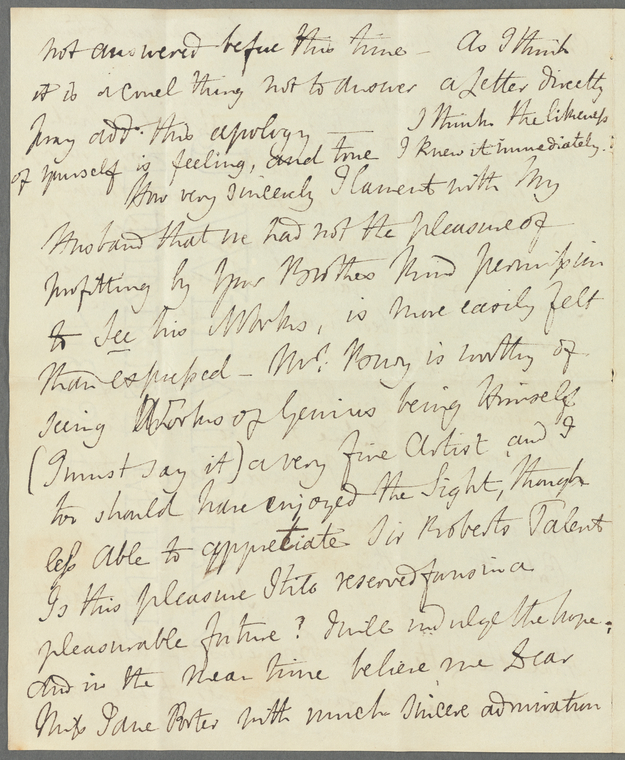 not answered before this time – As I think
it is a cruel thing not to answer a Letter directly
pray add this apology — I think the likeness
of yourself is feeling, and true I knew it immediately.
How very sincerely I lament with My
Husband that we had not the pleasure of
profitting by your Brothers kind permission
to See his Works, is more easily felt
than expressed – Mr. is worthy of
seeing Works of Genius being Himself
(I must say it) a very fine Artist and I
too should have enjoyed the Sight, though
less able to appretiate Sir Roberts Talent
Is this pleasure still reserved for us in a
pleasurable future? I will indulge the hope.
And in the mean time believe me Dear
Miss Jane Porter with much sincere admiration